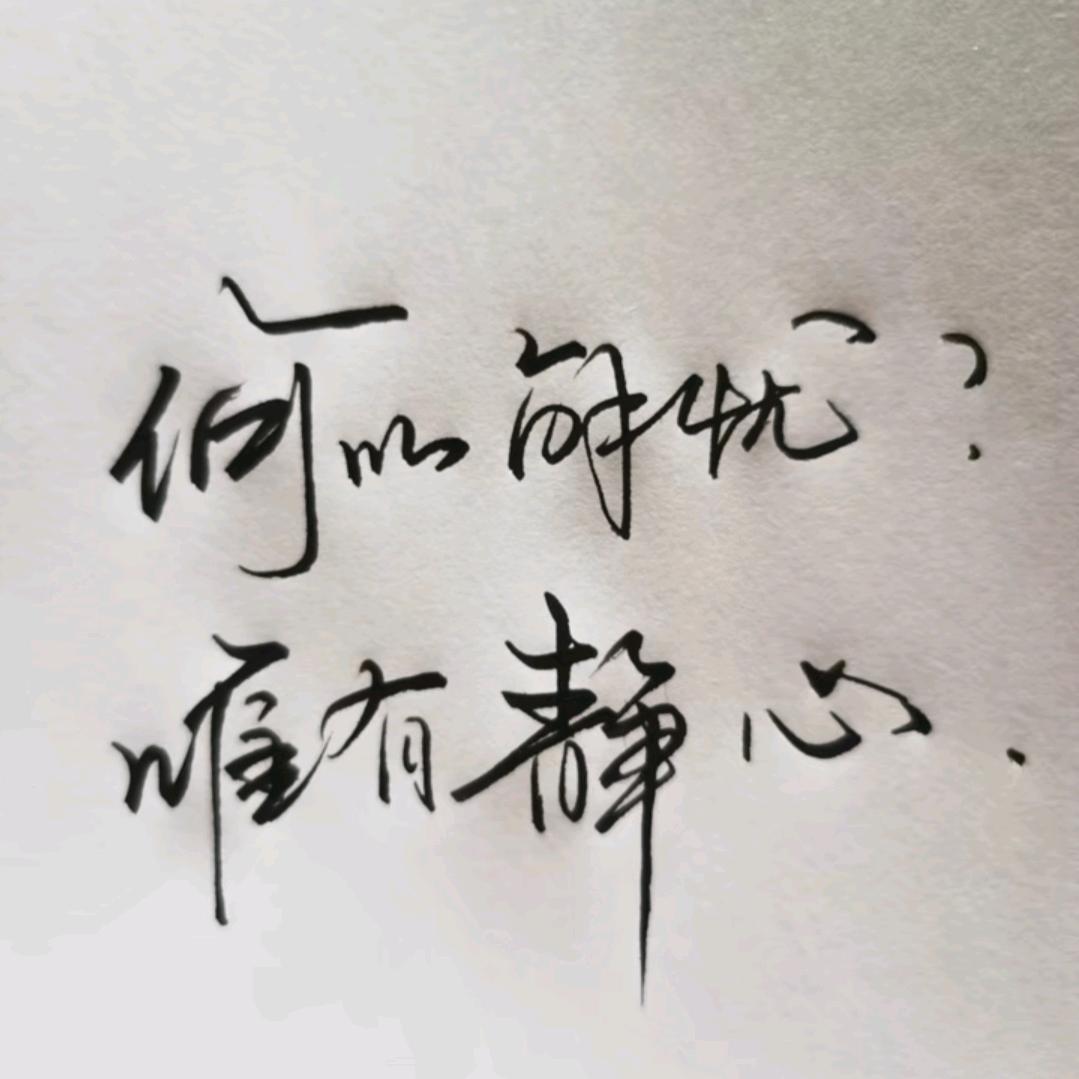 何以解忧?
唯有静心.